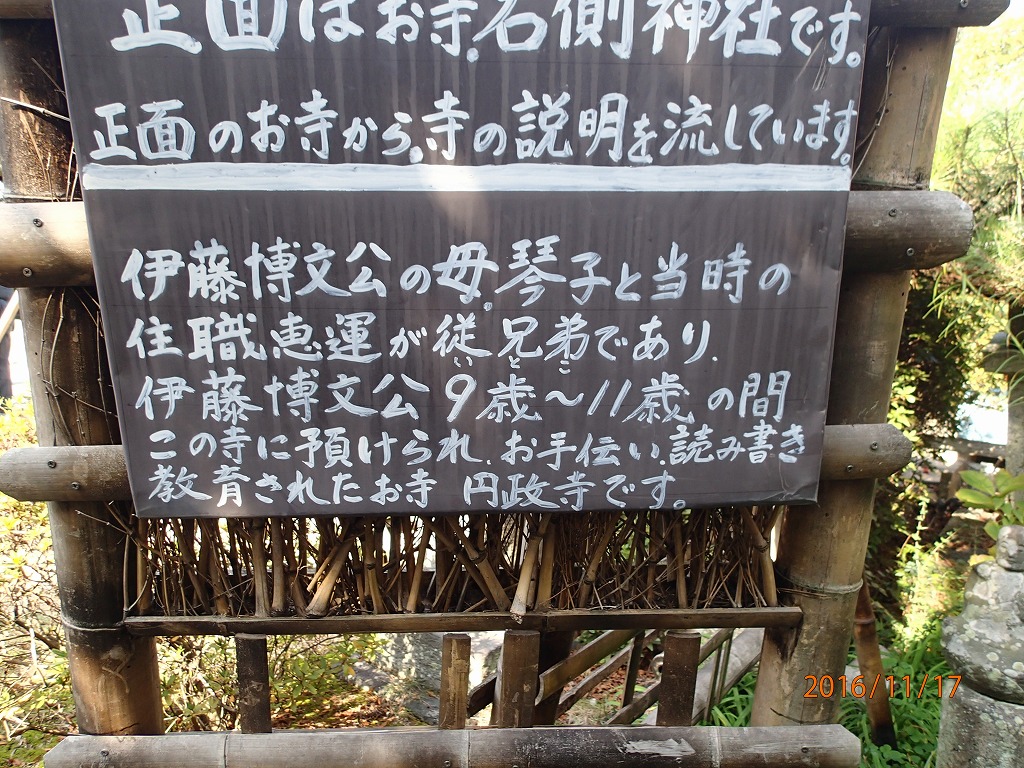 正面はお寺.右側神社です。
正面のお寺から.寺の説明を流しています。
伊藤博文公の母.琴子と当時の
住職恵運が従兄弟であり.
いとこ
伊藤博文公9歳〜11歳の間
この寺に預けられ.お手伝い.読み書き
教育されたお寺 円政寺です。
2016/11/17